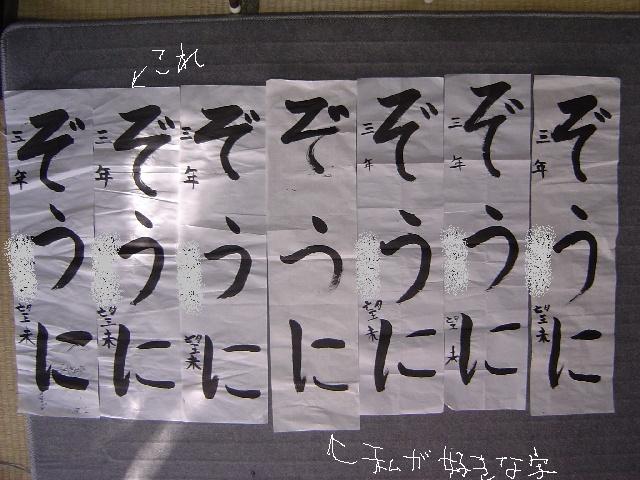 これ
ぞうに
三年
望未
ぞうに
三年
望未
ぞうに
三年
望未
ぞうに
ぞうに
三年
望未
ぞうに
三年
望未
ぞうに
三年
望未
私が好きな字